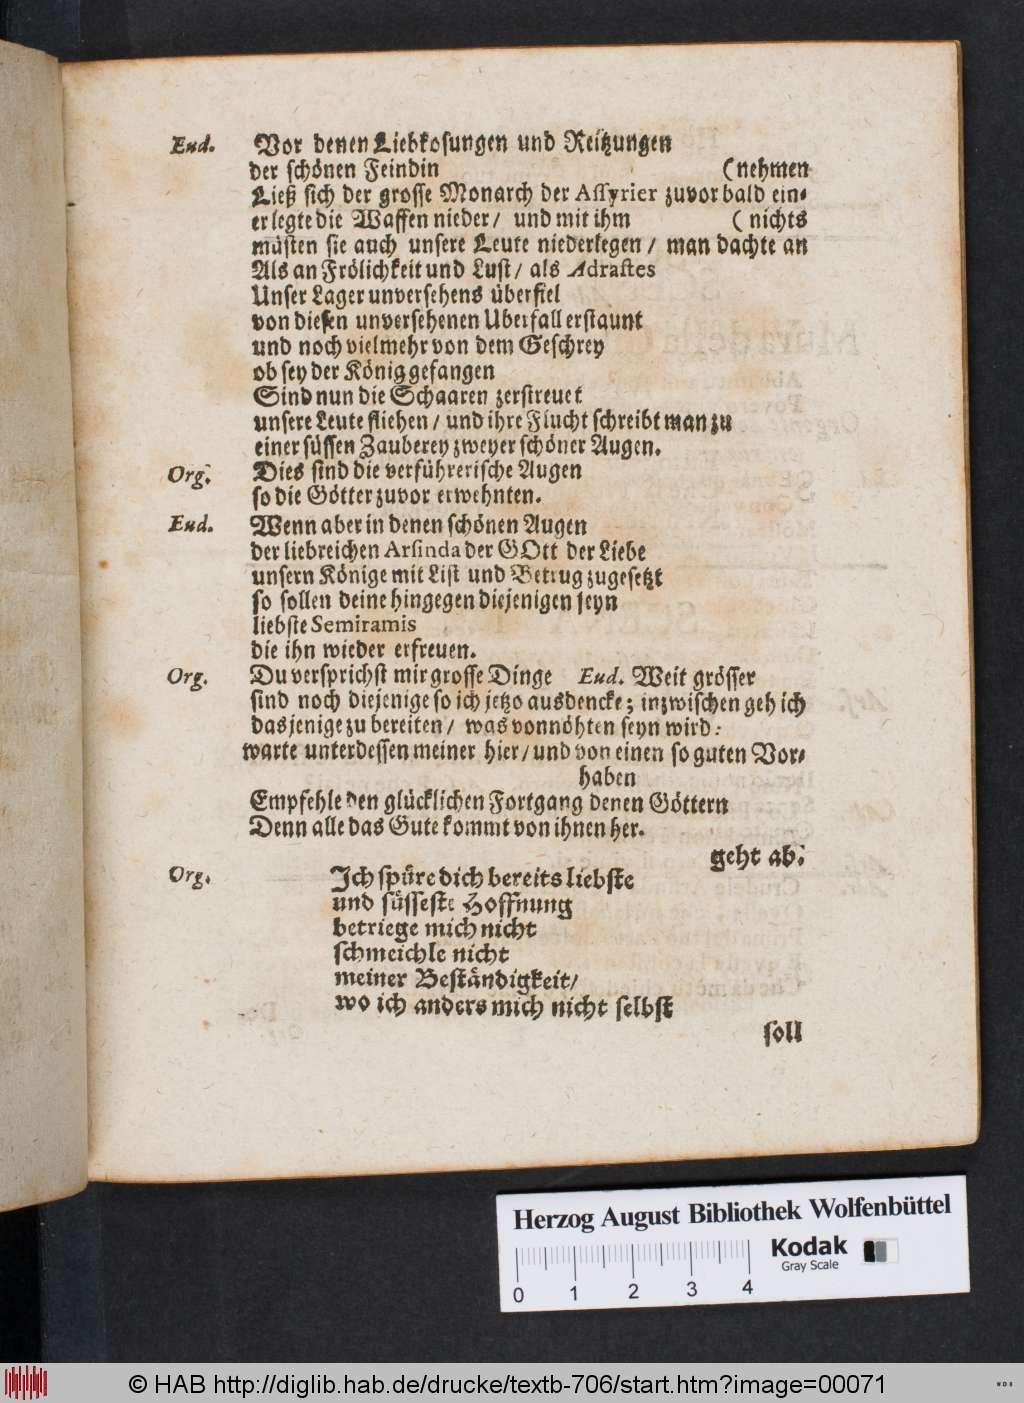 Eud. Vor denen Liebkosungen und Reitzungen
der schönen Feindin (nehmen
Ließ sich der grosse Monarch der Assyrier zuvor bald ein-
er legte die Waffen nieder / und mit ihm ( nichts
müsten sie auch unsere Leute niederlegen / man dachte an
Als an Frölichkeit und Lust / als Adrastes
Unser Lager unversehens überfiel
von diesen unversehenen Uberfall erstaunt
und noch vielmehr von dem Geschrey
ob sey der König gefangen
Sind nun die Schaaren zerstreuet
unsere Leute fliehen / und ihre Flucht schreibt man zu
einer süssen Zauberey zweyer schöner Augen.
Org. Dies sind die verführerische Augen
so die Götter zuvor erwehnten.
Eud. Wenn aber in denen schönen Augen
der liebreichen Arsinda der GOtt der Liebe
unsern Könige mit List und Betrug zugesetzt
so sollen deine hingegen diejenigen seyn
liebste Semiramis
die ihn wieder erfreuen.
Org. Du versprichst mir grosse Dinge Eud. Weit grösser
sind noch diejenige so ich jetzo ausdencke; inzwischen geh ich
dasjenige zu bereiten / was vonnöhten seyn wird:
warte unterdessen meiner hier / und von einen so guten Vor-
haben
Empfehle den glücklichen Fortgang denen Göttern
Denn alle das Gute kommt von ihnen her.
geht ab.
Org. Ich spüre dich bereits liebste
und süsseste Hoffnung
betriege mich nicht
schmeichle nicht
meiner Beständigkeit /
wo ich anders mich nicht selbst
soll
Herzog August Bibliothek Wolfenbüttel
Kodak
Gray Scale
0 1 2 3 4
© HAB http://diglib.hab.de/drucke/textb-706/start.htm?image=00071